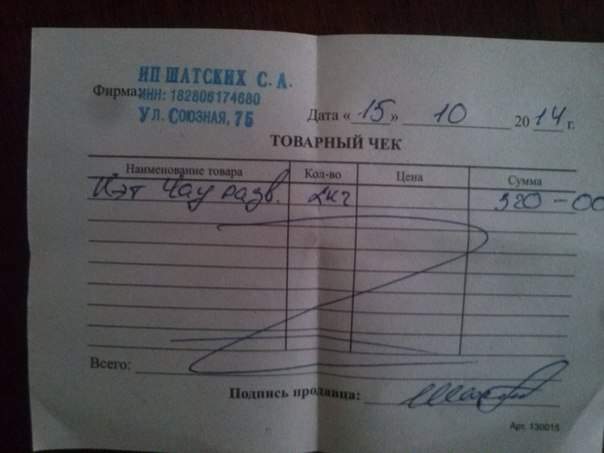 ИП ШАТСКИХ С. А.
Фирма: ИНН: 182806174680
Ул. Союзная, 75
Дата «15» 10 2014 г.
ТОВАРНЫЙ ЧЕК
Наименование товара Кол-во Цена Сумма
Кэт Чау разв. 2кг 320-00
Всего:
Подпись продавца:
Арт. 130015